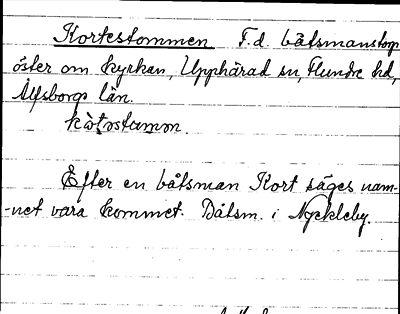 Kortestommen F.d. båtsmanstorp
öster om kyrkan, Upphärad sn, Flundre hd,
Älfsborgs län.
kòṭostamən.
Efter en båtsman Kort säges nam-
-net vara kommet. Båtsm. i Nyckleby.